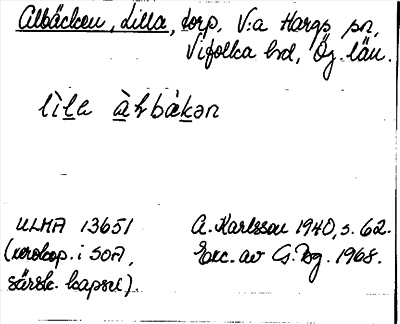 Albäcken, Lilla, torp, V:a Hargs sn,
Vifolka hd, Ög. län.
lìla àɫbäkən
ULMA 13651
(xerokop. i SOA,
särsk. kapsel).
A. Karlsson 1940, s. 62.
Exc. av G. Bg. 1968.